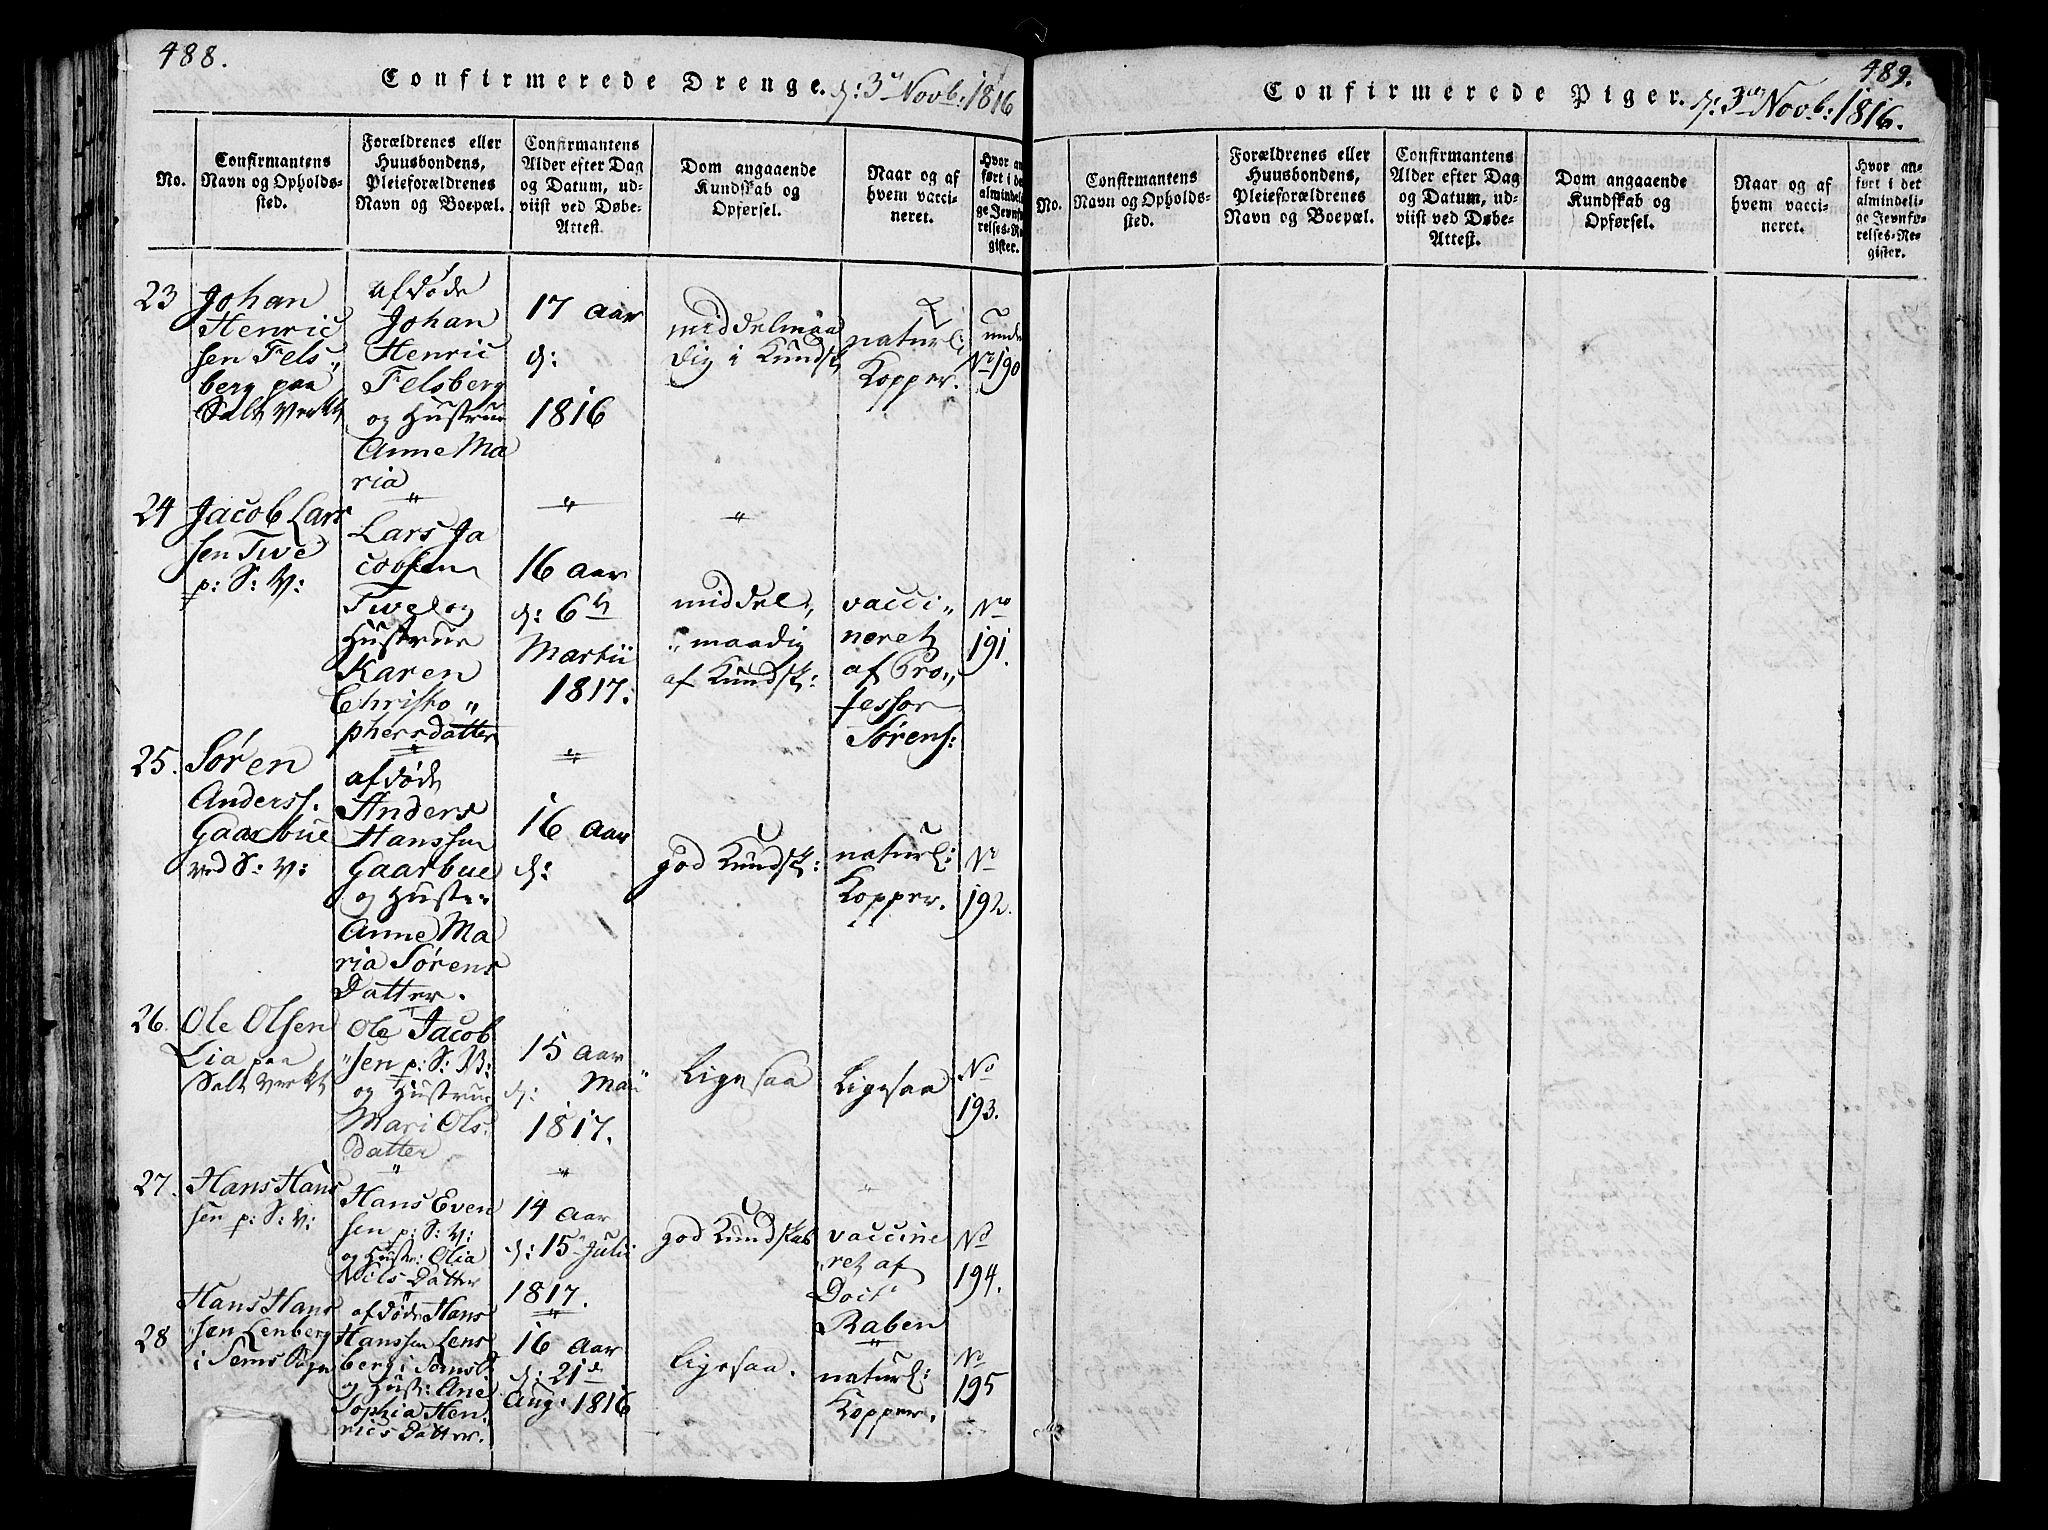 488.
Confirmerede Drenge. d: 3die Novb: 1816
No.
Confirmantens
Navn og Opholds-
sted.
Forældrenes eller
Huusbondens,
Pleieforældrenes
Navn og Boepæl.
Confirmantens
Alder efter Dag
og Datum, ud-
viist ved Døbe-
Attest.
Dom angaaende
Kundskab og
Opførsel.
Naar og af
hvem vacci-
neret.
Hvor an-
ført i det
almindeli-
ge Jevnfø-
relses-Re-
gister.
23
Johan
Henric
sen Fels„
berg paa
Salt Verkt
afdøde
Johan
Henric
Felsberg
og Hustrue
Anne Ma
ria
17 aar
d:
1816
middelmaa
dig i Kundsk
naturl:
Kopper.
unde
No 190
24
Jacob Lars
sen Tvve
p: S: V:
Lars Ja
cobsen
Tvve og
Hustrue
Karen
Christo„
phersdatter
16 aar
d: 6te
Martii
1817:
middel„
„maadig
af Kundsk:
vacci„
neret
af Pro„
fessor
Sørens:
No
191.
25.
Søren
Anderss.
Gaarbue
ved S: V:
afdøde
Anders
Hanssen
Gaarbue
og Hustr:
Anne Ma
ria Sørens
Datter.
16 aar
d:
god Kundsk:
naturl:
Kopper.
No
192.
26.
Ole Olsen
Lia paa
Salt Verkt
Ole Jacob
„sen p: S: V:
og Hustrue
Mari Ols:
datter
15 aar
d: Maii
1817.
Ligesaa
Ligesaa
No
193.
27.
Hans Hans
sen p: S: V:
Hans Even
sen p: S: V:
og Hustr: Olia
Nils Datter
14 aar
d: 15 Julii
1817.
god Kundskab
vaccine
„ret af
Doct:
Raben
No
194.
28
Hans Hans
„sen Lenberg
i Sems Sogn
afdøde Hans
Hanssen Lens
berg i Semss:
og Hustr: Ane
Sophia Hen:
rics Datter.
16 aar
d: 21de
Aug: 1816
Ligesaa.
naturl:
Kopper.
No
195
489.
Confirmerede Piger. d: 3die Novb: 1816.
No.
Confirmantens
Navn og Opholds-
sted.
Forældrenes eller
Huusbondens,
Pleieforældrenes
Navn og Boepæl.
Confirmantens
Alder efter Dag
og Datum, ud-
viist ved Døbe-
Attest.
Dom angaaende
Kundskab og
Opførsel.
Naar og af
hvem vacci-
neret.
Hvor an-
ført i det
almindeli-
ge Jevnfø-
relses-Re-
gister.